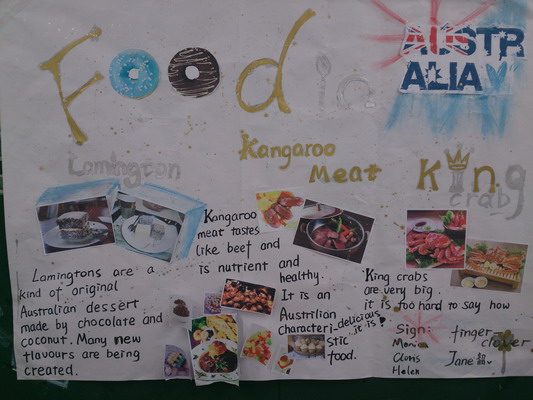 Food in
AUSTR
ALIA
Lamington
Kangaroo
Meat
King
crab
Lamingtons are a
kind of original
Australian dessert
made by chocolate and
coconut. Many new
flavours are being
created.
Kangaroo
meat tastes
like beef and
is nutrient and
healthy.
It is an
Austrilian
characteri-
stic
food.
King crabs
are very big
it is too hard to say how
delicious
it is!
Sign:
Monica
Cloris
Helen
finger-
clover
Jane